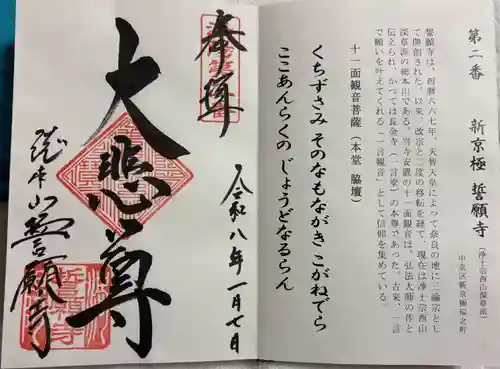 第二番 新京極 誓願寺
(浄土宗西山深草派)
中京区新京極桜之町
誓願寺は、西暦六六七年、天智天皇によって奈良の地に三論宗とし
て開創された。以来、改宗と二度の移転を経て、現在は浄土宗西山
深草派の総本山である。当寺安置の十一面観音は、弘法大師の作と
伝えられ、かつては長金寺(一言堂)の本尊であった。古来、一言
で願いを叶えてくれる「一言観音」として信仰を集めている。
十一面観音菩薩(本堂 脇壇)
くちずさみ そのなもながき こがねでら
ここあんらくの じょうどなるらん
奉拝
令和八年一月七日
大悲尊
誓願寺